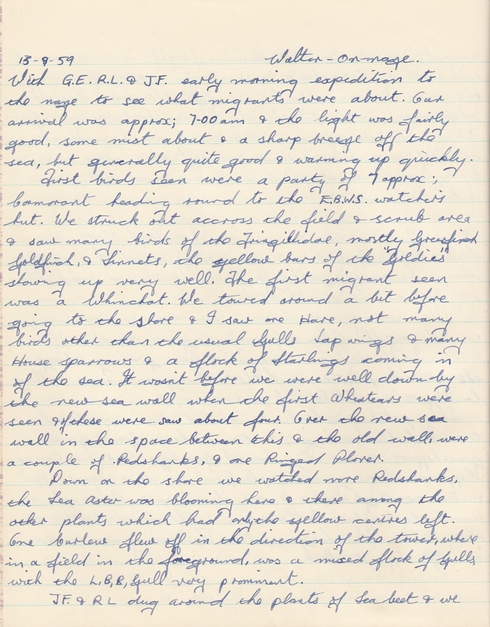 13-9-59 Walton-On-naze.
With G.E. R.L. & J.F. early morning expedition to
the naze to see what migrants were about. Our
arrival was approx; 7-00 am & the light was fairly
good, some mist about & a sharp breeze off the
sea, but generally quite good & warming up quickly.
First birds seen were a party of 7 approx;
Comorant heading round to the E.B.W.S. watchers
hut. We struck out accross the field & scrub area
& saw many birds of the Fringillidae, mostly Greenfinch
Goldfinch, & Linnets, the yellow bars of the "Goldies"
showing up very well. The first migrant seen
was a Whinchat. We toured around a bit before
going to the shore & I saw one Hare, not many
birds other than the usual Gulls Lapwings & many
House sparrows & a flock of Starlings coming in
of the sea. It wasnt before we were well down by
the new sea wall when the first Wheatears were
seen & of these were saw about four. Over the new sea
wall in the space between this & the old wall, were
a couple of Redshanks, & one Ringed Plover.
Down on the shore we watched more Redshanks,
the Sea Aster was blooming here & there among the
other plants which had only the yellow centres left.
One Curlew flew off in the direction of the tower, where
in a field in the foreground, was a mixed flock of Gulls
with the L.B.B. Gull very prominent.
J.F. & R.L dug around the plants of Sea beet & we